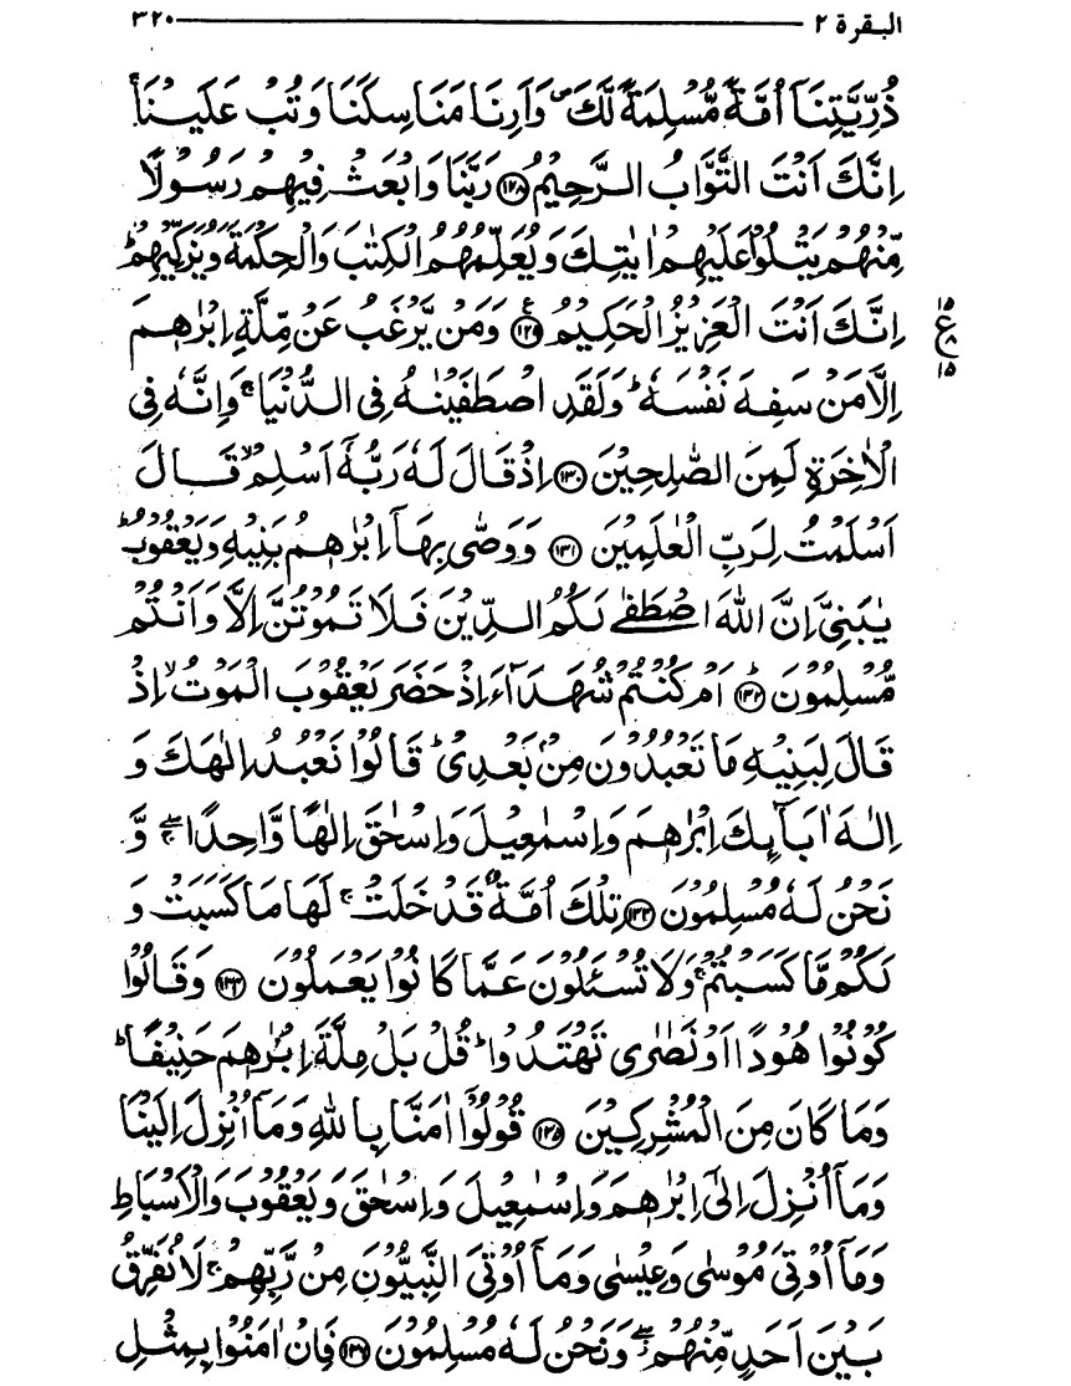 البقرة ٢ ٣٢٠
ذُرِّيَّتِنَاۤ اُمَّةً مُّسْلِمَةً لَّكَ۪ وَاَرِنَا مَنَاسِكَنَا وَتُبْ عَلَيْنَاۚ
اِنَّكَ اَنْتَ التَّوَّابُ الرَّحِيْمُ ﴿۱۲۸﴾ رَبَّنَا وَابْعَثْ فِيْهِمْ رَسُوْلًا
مِّنْهُمْ يَتْلُوْا عَلَيْهِمْ اٰيٰتِكَ وَيُعَلِّمُهُمُ الْكِتٰبَ وَالْحِكْمَةَ وَيُزَكِّيْهِمْؕ
اِنَّكَ اَنْتَ الْعَزِيْزُ الْحَكِيْمُ ﴿۱۲۹﴾ وَمَنْ يَّرْغَبُ عَنْ مِّلَّةِ اِبْرٰهٖمَ
١٥
ع
٨
١٥
اِلَّا مَنْ سَفِهَ نَفْسَهٗؕ وَلَقَدِ اصْطَفَيْنٰهُ فِى الدُّنْيَاۚ وَاِنَّهٗ فِى
الْاٰخِرَةِ لَمِنَ الصّٰلِحِيْنَ ﴿۱۳۰﴾ اِذْ قَالَ لَهٗ رَبُّهٗۤ اَسْلِمْۙ قَالَ
اَسْلَمْتُ لِرَبِّ الْعٰلَمِيْنَ ﴿۱۳۱﴾ وَوَصّٰى بِهَاۤ اِبْرٰهٖمُ بَنِيْهِ وَيَعْقُوْبُؕ
يٰبَنِىَّ اِنَّ اللّٰهَ اصْطَفٰى لَكُمُ الدِّيْنَ فَلَا تَمُوْتُنَّ اِلَّا وَاَنْتُمْ
مُّسْلِمُوْنَؕ ﴿۱۳۲﴾ اَمْ كُنْتُمْ شُهَدَآءَ اِذْ حَضَرَ يَعْقُوْبَ الْمَوْتُۙ اِذْ
قَالَ لِبَنِيْهِ مَا تَعْبُدُوْنَ مِنْۢ بَعْدِىْؕ قَالُوْا نَعْبُدُ اِلٰهَكَ وَ
اِلٰهَ اٰبَآىِٕكَ اِبْرٰهٖمَ وَاِسْمٰعِيْلَ وَاِسْحٰقَ اِلٰهًا وَّاحِدًاۖۚ وَّ
نَحْنُ لَهٗ مُسْلِمُوْنَ ﴿۱۳۳﴾ تِلْكَ اُمَّةٌ قَدْ خَلَتْۚ لَهَا مَا كَسَبَتْ وَ
لَكُمْ مَّا كَسَبْتُمْۚ وَلَا تُسْـَٔلُوْنَ عَمَّا كَانُوْا يَعْمَلُوْنَ ﴿۱۳۴﴾ وَقَالُوْا
كُوْنُوْا هُوْدًا اَوْ نَصٰرٰى تَهْتَدُوْاؕ قُلْ بَلْ مِلَّةَ اِبْرٰهٖمَ حَنِيْفًاؕ
وَمَا كَانَ مِنَ الْمُشْرِكِيْنَ ﴿۱۳۵﴾ قُوْلُوْۤا اٰمَنَّا بِاللّٰهِ وَمَاۤ اُنْزِلَ اِلَيْنَا
وَمَاۤ اُنْزِلَ اِلٰٓى اِبْرٰهٖمَ وَاِسْمٰعِيْلَ وَاِسْحٰقَ وَيَعْقُوْبَ وَالْاَسْبَاطِ
وَمَاۤ اُوْتِىَ مُوْسٰى وَعِيْسٰى وَمَاۤ اُوْتِىَ النَّبِيُّوْنَ مِنْ رَّبِّهِمْۚ لَا نُفَرِّقُ
بَيْنَ اَحَدٍ مِّنْهُمْۖ وَنَحْنُ لَهٗ مُسْلِمُوْنَ ﴿۱۳۶﴾ فَاِنْ اٰمَنُوْا بِمِثْلِ